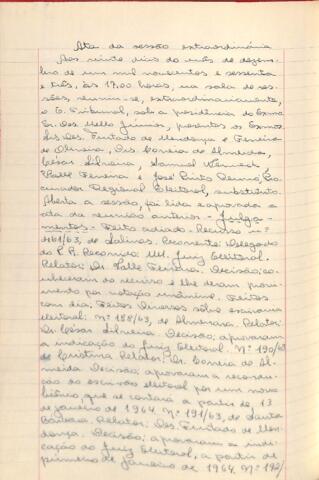 Ata da sessão extraordinária
Aos vinte dias do mês de dezem-
bro de um mil novecentos e sessenta
e três, às 17,00 horas, na sala de ses-
sões, reuniu-se, extraordinariamente,
o E. Tribunal, sob a presidência do Exmo
Sr. Des. Mello Júnior, presentes os Exmos
Srs. Des. Furtado de Mendonça e Ferreira
de Oliveira, Drs. Correia de Almeida,
César Silveira, Samuel Werneck,
Valle Ferreira e José Pinto Renó, Pro-
curador Regional Eleitoral, substituto.
Aberta a sessão, foi lida e aprovada a
ata da reunião anterior - Julga-
mentos - Feito adiado - Recurso nº
461/63, de Salinas. Recorrente: Delegado
do P.R. Recorrido: M. Juiz Eleitoral.
Relator: Dr. Valle Ferreira. Decisão: co-
nheceram do recurso e lhe deram provi-
mento por votação unânime. Feitos
com dia. Feitos Diversos sobre escrivania
eleitoral: Nº 188/63, de Almenara. Relator:
Dr. César Silveira. Decisão: aprovaram
a indicação do Juiz Eleitoral. Nº 190/63
de Cristina Relator: Dr. Correia de Al-
meida Decisão: aprovaram a recondu-
ção do escrivão eleitoral por um novo
biênio, que se contará a partir de 13
de janeiro de 1964. Nº 191/63, de Santa
Bárbara. Relator: Des. Furtado de Men-
donça. Decisão: aprovaram a indi-
cação do Juiz Eleitoral, a partir de
primeiro de janeiro de 1964. Nº 192/